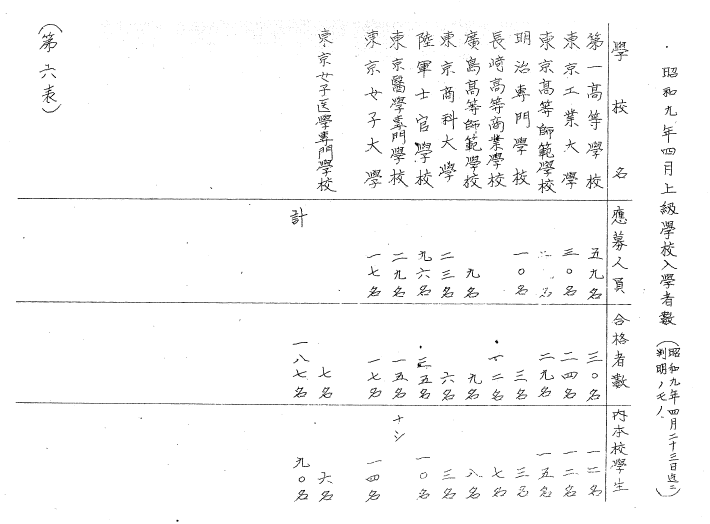 昭和九年四月上級學校入學者數(昭和九年四月二十三日迄ニ判明ノモノ)
學校名 應募人員 合格者數 內本校學生
第一高等學校 五九名 三〇名 一二名
東京工業大學 三〇名 二四名 一二名
東京高等師範學校 名 二九名 一五名
明治專門學校 一〇名 三名 三名
長崎高等商業學校 十二名 七名
廣島高等師範學校 九名 九名 八名
東京商科大學 二三名 六名 三名
陸軍士官學校 九六名 三五名 一〇名
東京醫學專門學校 二九名 一五名 ナシ
東京女子大學 一七名 一七名 一四名
東京女子医學專門學校 七名 六名
計 一八七名 九〇名
(第六表)